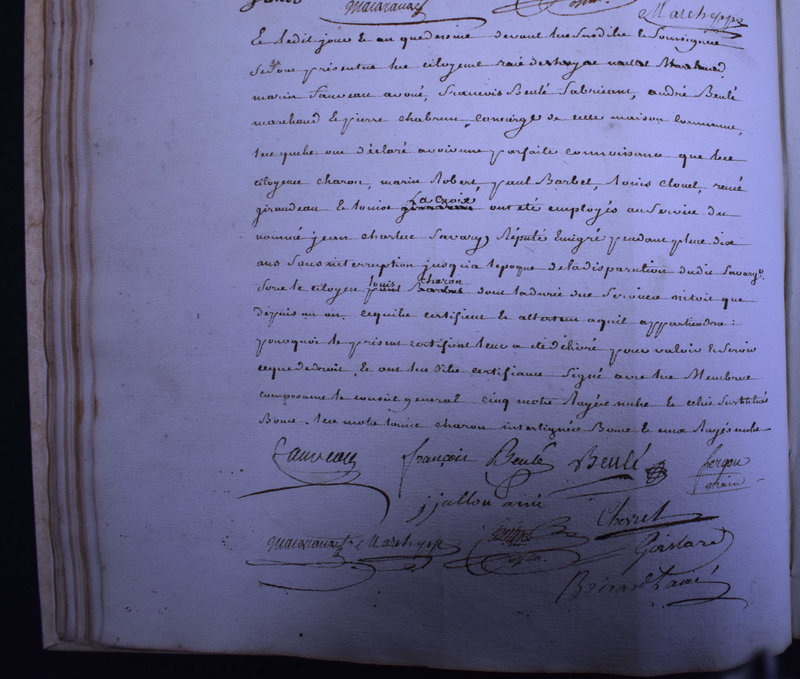 Macaranza
Marcheppe
Et ledit jour et an que dessus devant les susdits et soussignés
se sont présentés les citoyens marchand
marin Fauveau avoué, François Beulé fabricant, andré Beulé
marchand et pierre chabrun, concierge de cette maison commune,
lesquels ont déclaré avoir une parfaite connoissance que les
citoyens charon, marin Robert, paul Barbet, Louis clouet, rené
girondeau et Louise La Croix ont été employés au Service du
nommé jean charles Savary, député Emigré pendant plus dix
ans Sans interruption jusqu'a l'epoque de la disparution dudit Savary
fors le citoyen Louis Charon dont la durée des Services n'etoit que
depuis un an. ce qu'ils certifient et attestent a qu'il appartiendra :
pourquoi le present certificat leur a eté délivré pour valoir et servir
ce que de droit, et ont lesdits certifians Signé avec les Membres
composans le conseil general cinq mots Rayés nuls et celui Substitué
Bons. les mots Louis charon interlignés Bons et ceux Rayés nuls
Fauveau françois Beulé Beulé
jallon ainé
Cherret
Marcheppe
Goislard